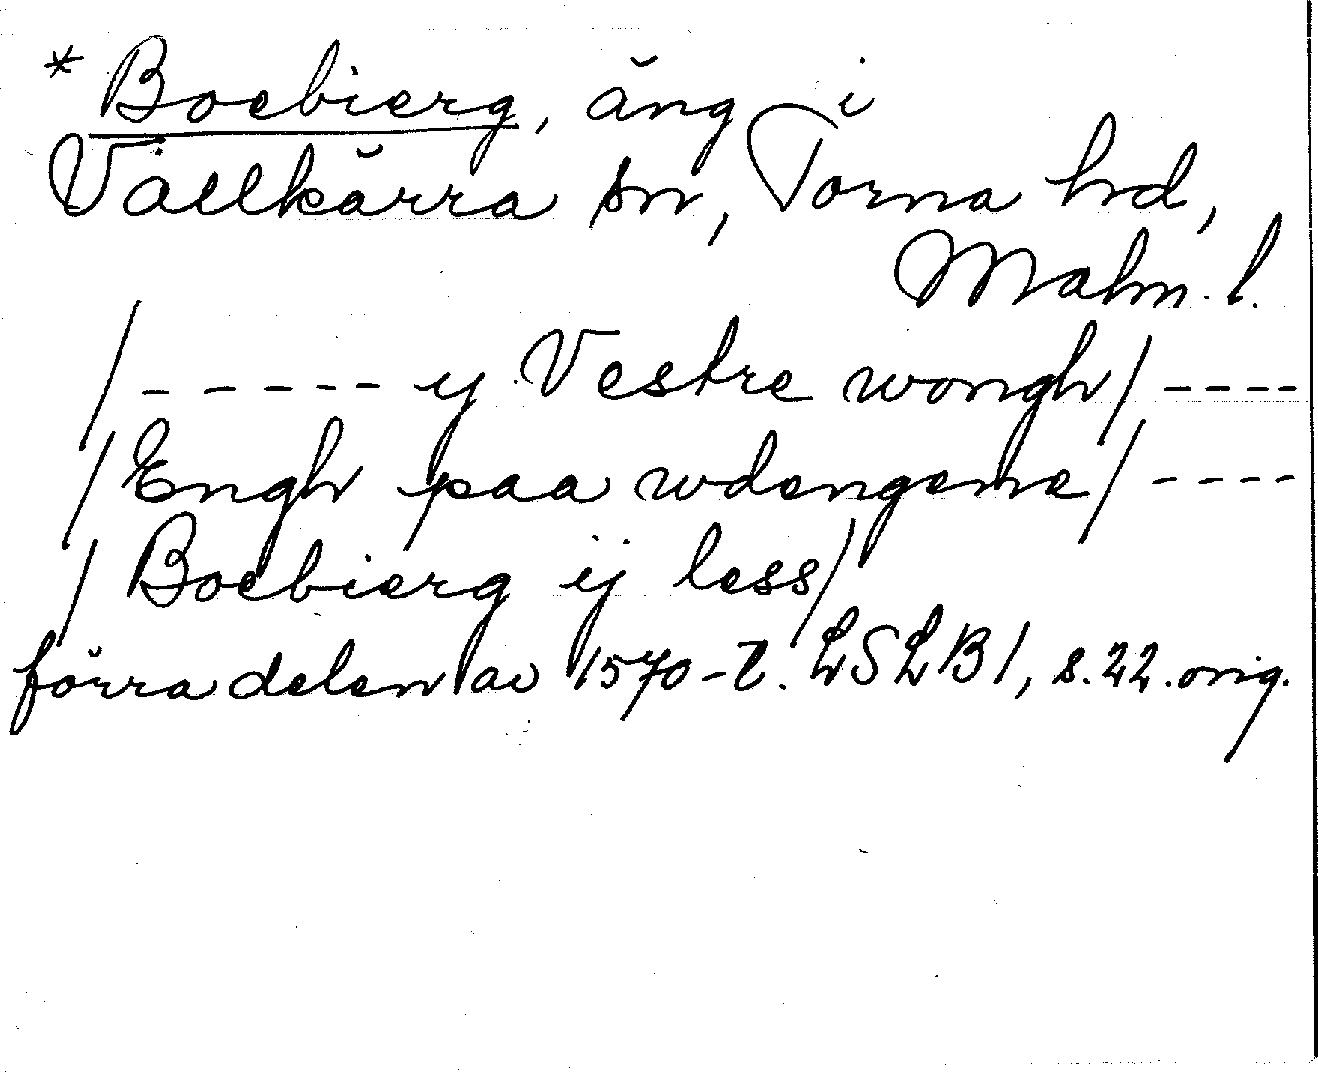 * Boebierg, äng i
Vallkärra sn, Torna hd,
Malm. l.
/ - - - - - y Vestre wongh / - - - -
/ Engh paa wdengerne / - - - -
/ Boebierg ij less /
förra delen av 1570-t. LSLB 1, s. 22. orig.